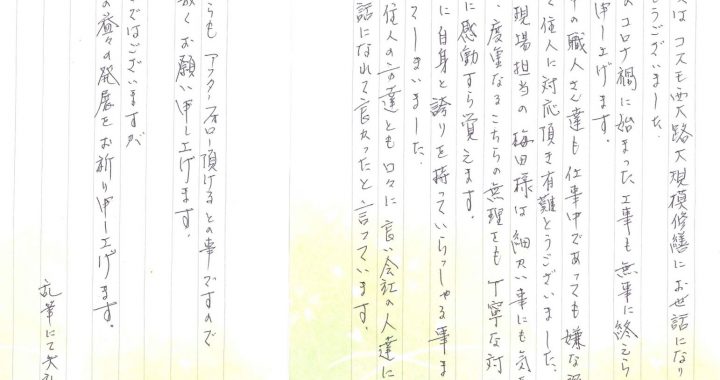 はコスモ西大路大規模修繕にお世話になり
うございました。
のコロナ禍に始まった工事も無事に終えら
申し上げます。
の職人さん達も仕事中であっても嫌な
く住人に対応頂き有難とうございました。
現場担当の梅田様は細かい事にも気を
度重なるこちらの無理をも丁寧な対
に感動すら覚えます。
に自身と誇りを持っていらっしゃる事ま
てしまいました。
住人の方達とも口々に良い会社の人達に
話になれて良かったと言っています。
らもアフターフォロー頂けるとの事ですので
敬くお願い申し上げます。
ではございますが
の益々の発展をお祈り申し上げます。
乱筆にて失礼